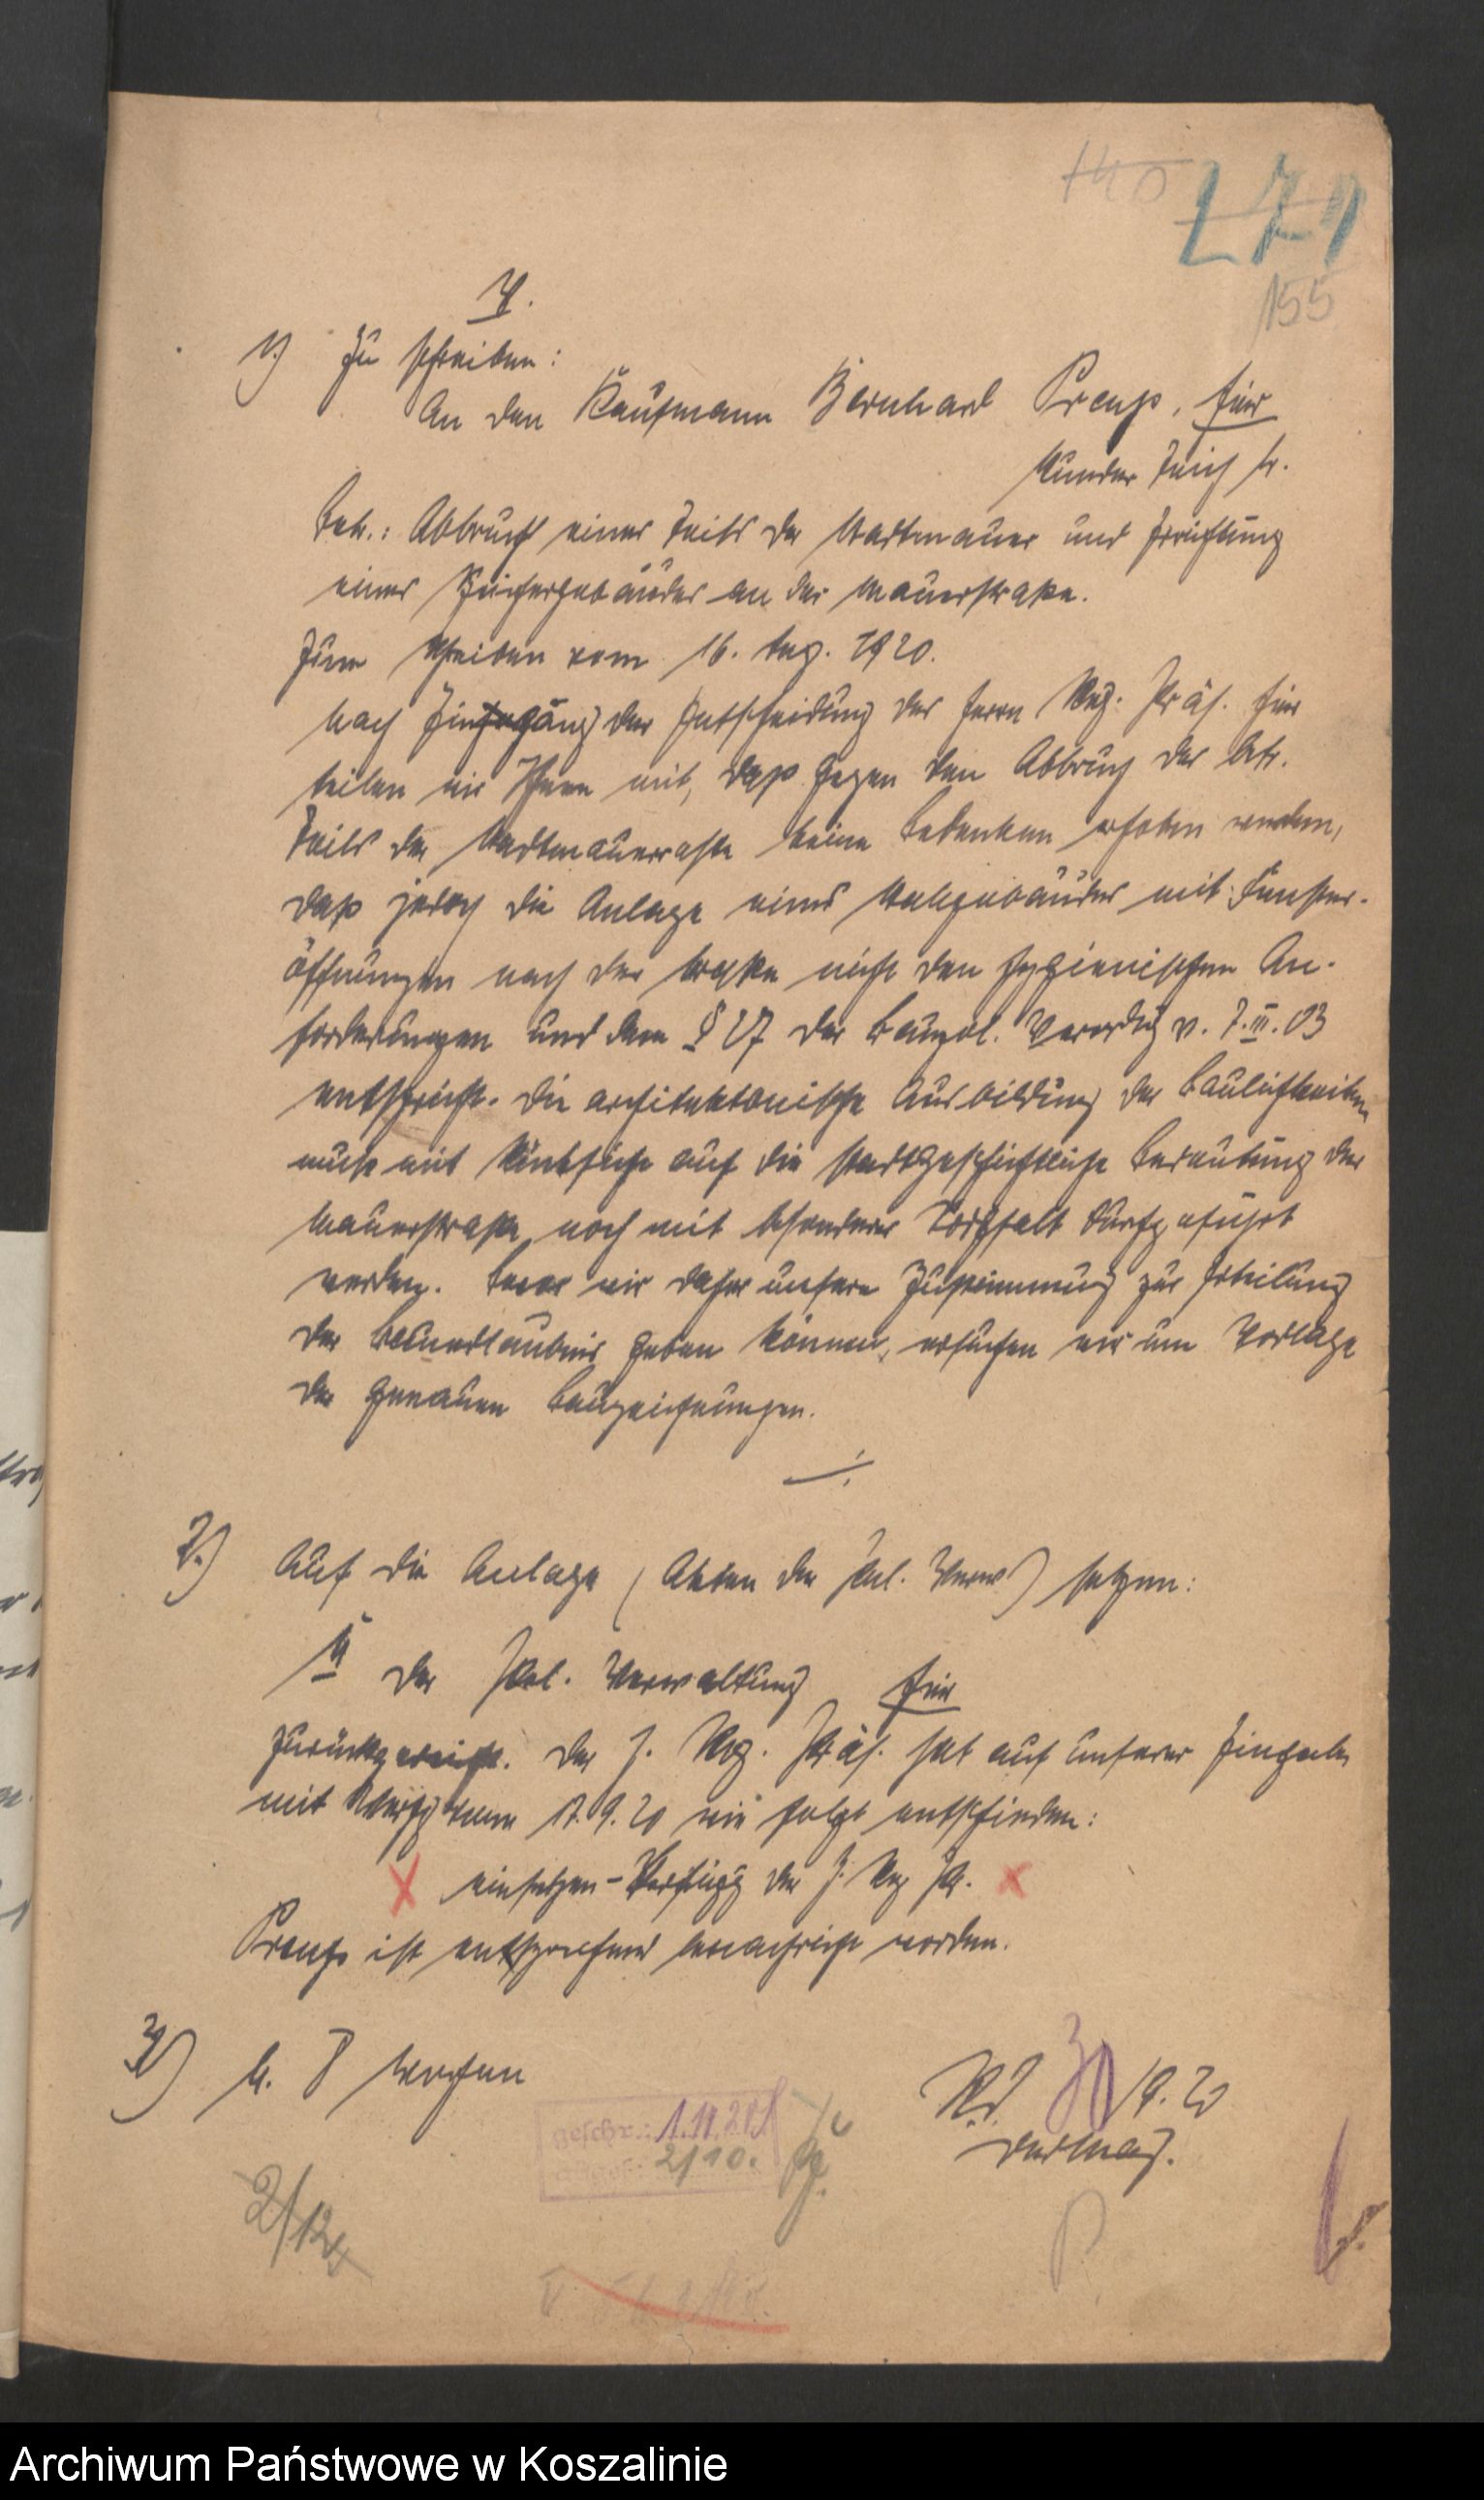 140
271
155
V.
1.) Zu schreiben:
An den Kaufmann Bernhard Preuß, hier
Runder Teich
Betr.: Abbruch eines Teils der Stadtmauer und Errichtung
eines Speichergebäudes an der Mauerstraße.
Zum Schreiben vom 16. Aug. 1920.
Nach Eingang der Entscheidung des Herrn Reg. Präs. hier
teilen wir Ihnen mit, daß gegen den Abbruch des betr.
Teils der Stadtmauerreste keine Bedenken erhoben werden,
daß jedoch die Anlage eines Stallgebäudes mit Fenster-
öffnungen nach der Straße nicht den hygienischen An-
forderungen und dem § 27 der Baupol. Verordg v. 7.III.03
entspricht. Die architektonische Ausbildung der Baulichkeiten
muß mit Rücksicht auf die stadtgeschichtliche Bedeutung der
Mauerstraße noch mit besonderer Sorgfalt durchgeführt
werden. Bevor wir daher unsere Zustimmung zur Erteilung
der Bauerlaubnis geben können, ersuchen wir um Vorlage
der genauen Bauzeichnungen.
2.) Auf die Anlage (Akten der Pol. Verw) setzen:
U der Pol. Verwaltung hier
zurückgereicht. Der H. Reg. Präs. hat auf unserer Eingabe
mit Verfg vom 17.9.20 wie folgt entschieden:
einsetzen – Verfügg des H. Reg Pr.
Preuß ist entsprechend benachricht worden.
3.) N. 8 Wochen
30/9. 20
geschr.: 1.10.20
abges. 2/10.
2/12